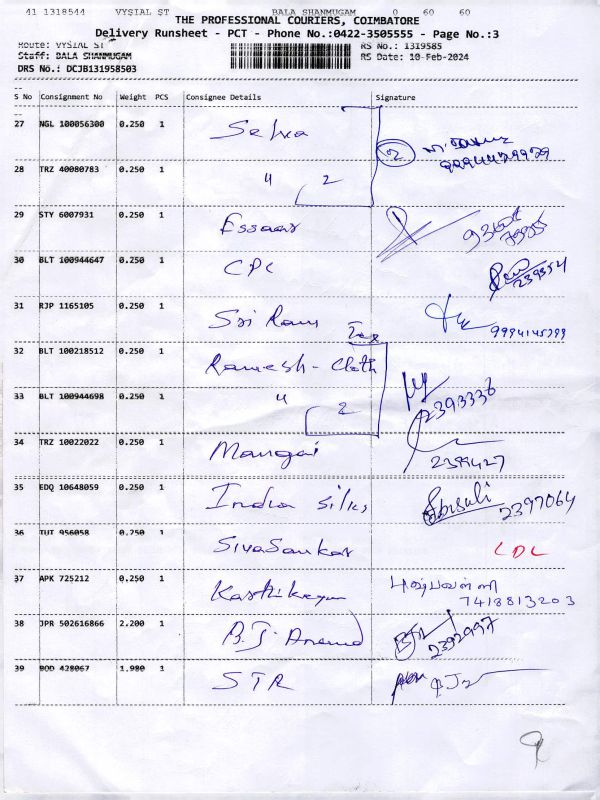 41 1318544 VYSIAL ST BALA SHANMUGAM 0 60 60
THE PROFESSIONAL COURIERS, COIMBATORE
Delivery Runsheet - PCT - Phone No.:0422-3505555 - Page No.:3
Route: VYSIAL ST RS No.: 1319585
Staff: BALA SHANMUGAM RS Date: 10-Feb-2024
DRS No.: DCJB131958503
S No Consignment No Weight PCS Consignee Details Signature
27 NGL 100056300 0.250 1 Selva 2
28 TRZ 40080783 0.250 1 " 2
29 STY 6007931 0.250 1 Essaar
30 BLT 100944647 0.250 1 CPC 239354
31 RJP 1165105 0.250 1 Sri Ram Tex
32 BLT 100218512 0.250 1 Ramesh - Cloth
33 BLT 100944698 0.250 1 " 2 2393336
34 TRZ 10022022 0.250 1 Mangai 2399427
35 EDQ 10648059 0.250 1 India Silks 2397064
36 TUT 956058 0.750 1 SivaSankar LDL
37 APK 725212 0.250 1 Karthikeyan 7418813203
38 JPR 502616866 2.200 1 B.J. Anand 2392997
39 BOD 428067 1.980 1 STR
9